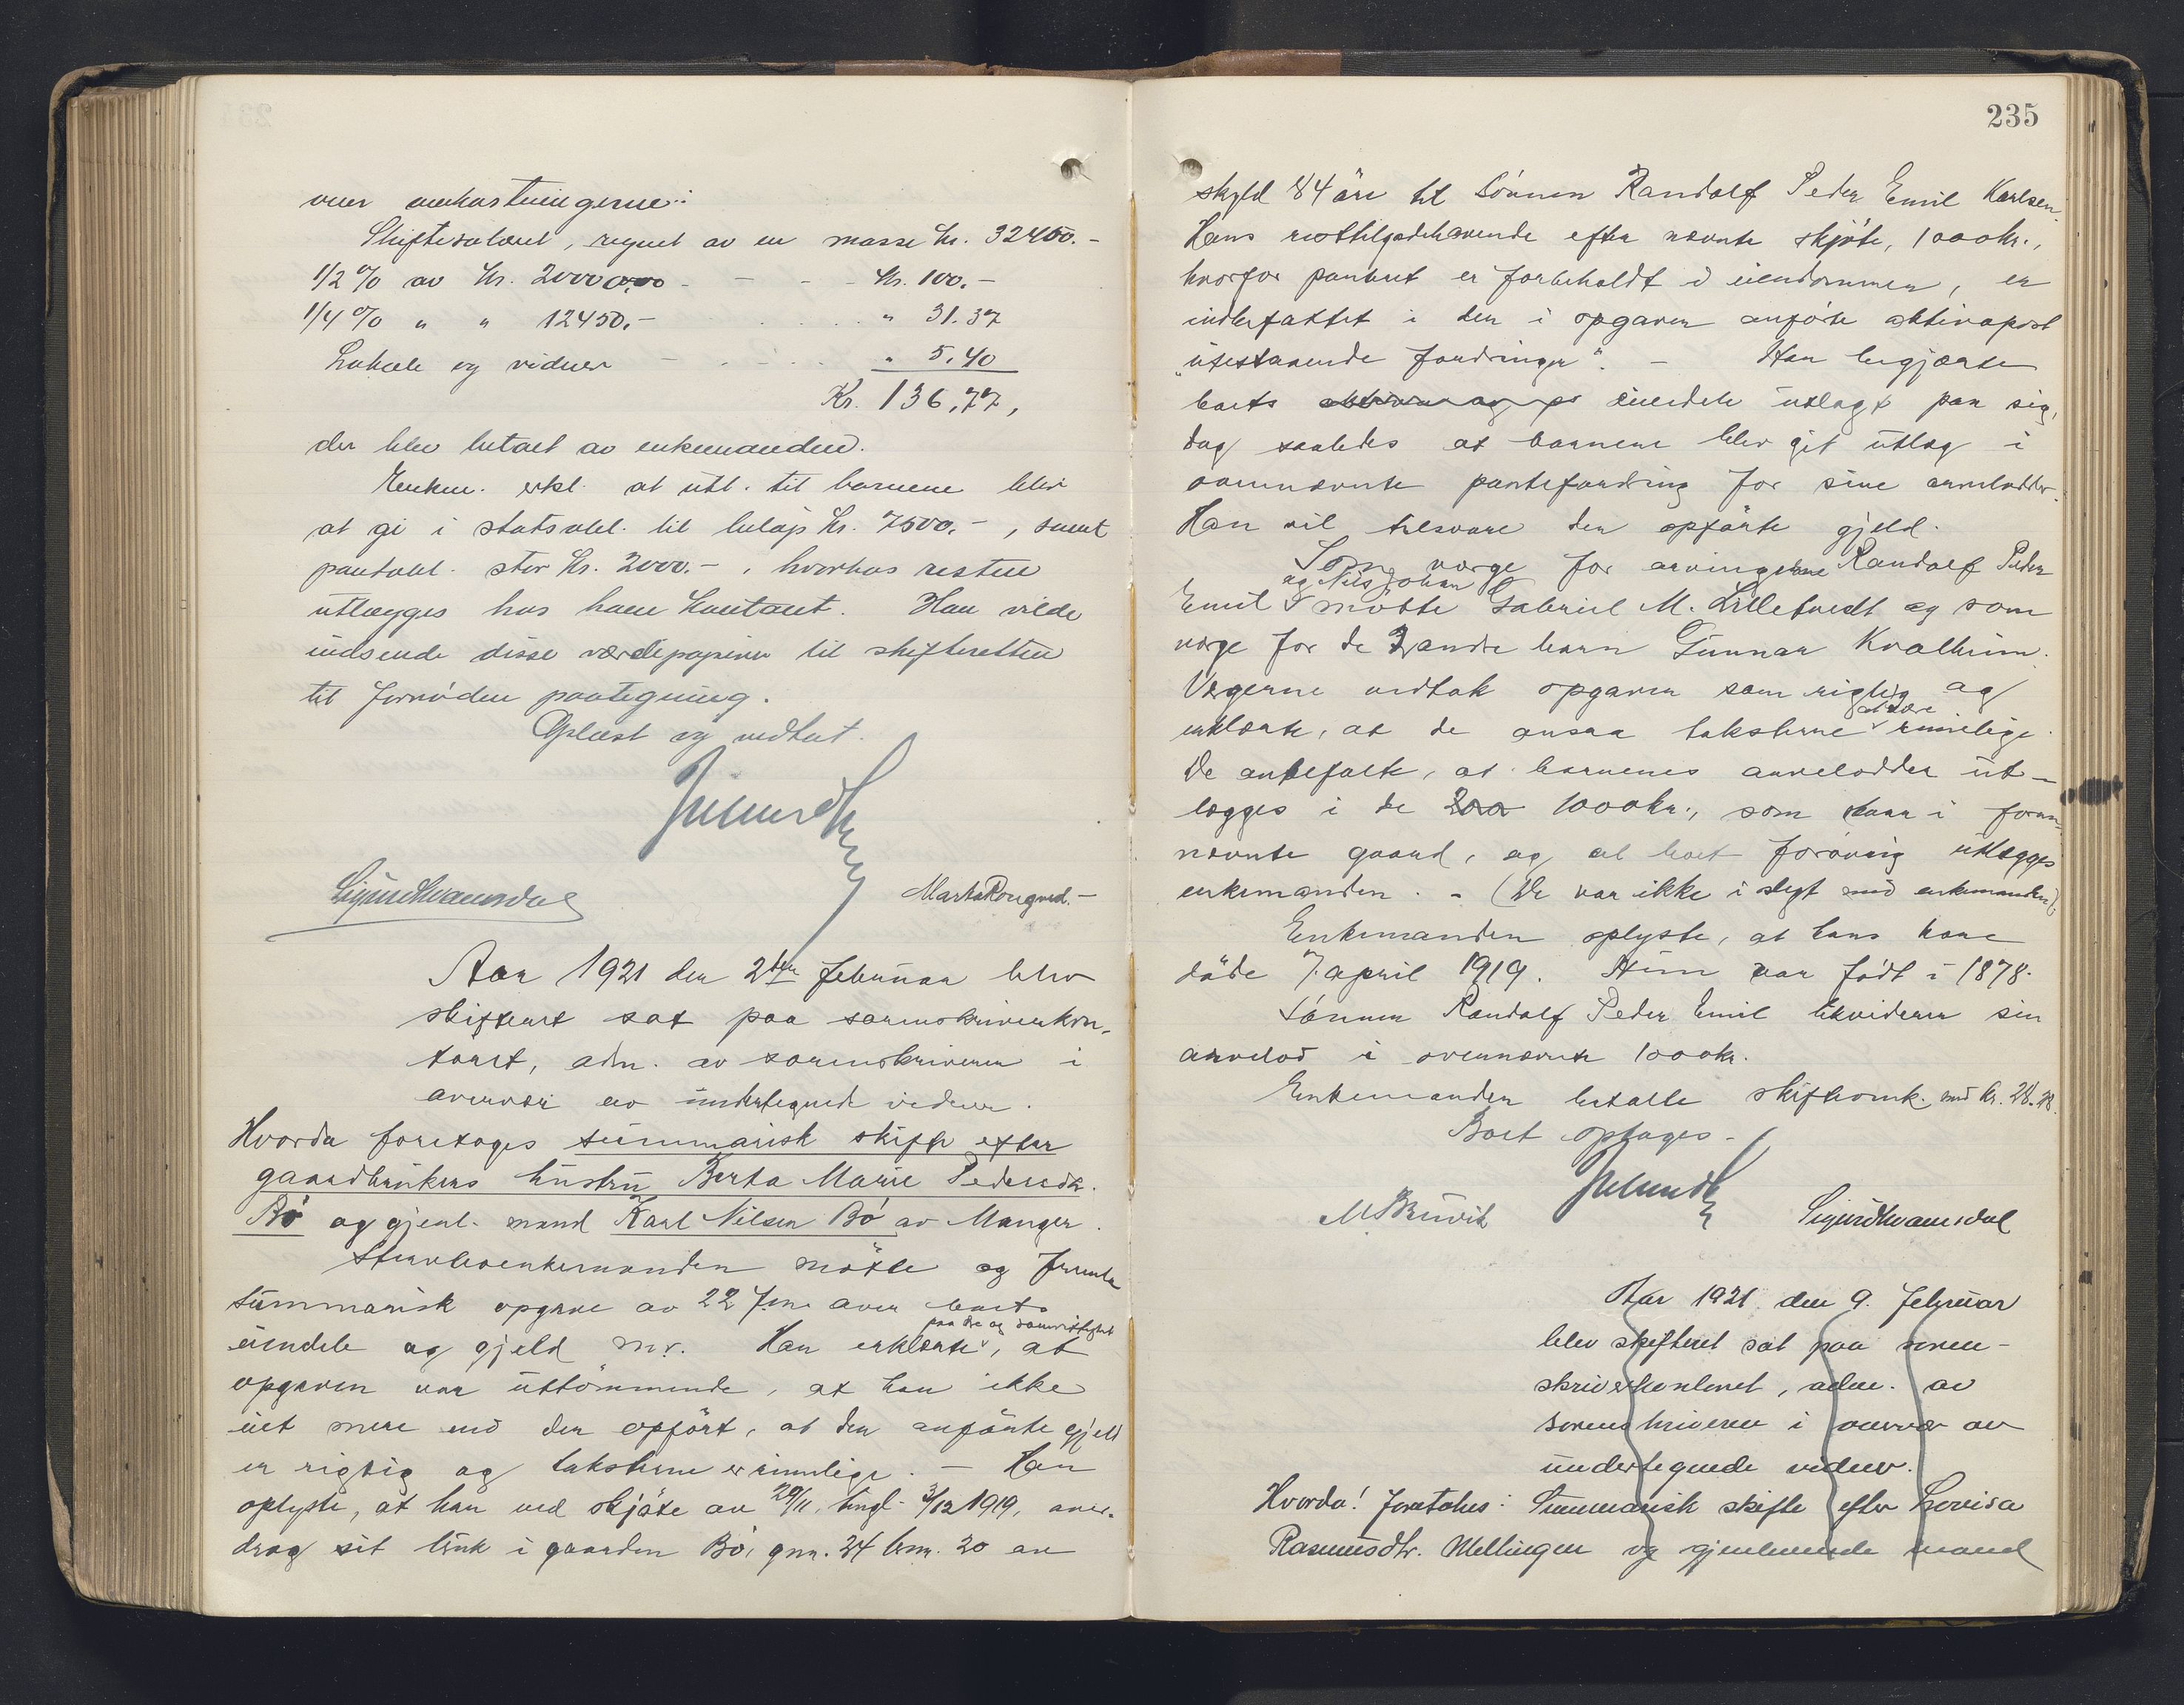 over omkostningerne:
Skiftesalæret, regnet av en masse kr. 32450.-
1/2 % av kr. 20000.00 - - - - kr. 100.-
1/4 % " " 12450.- " 31.37
Lokale og vidner - " 5.40
Kr. 136,77,
der blev betalt av enkemanden.
Enkem. erkl. at utl. til barnene blir
at gi i statsobl. til beløp kr. 7500.-, samt
pantobl. stor kr. 2000.-, hvorhos resten
utlægges hos ham kontant. Han vilde
indsende disse værdipapirer til skifteretten
til fornøden paategning.
Oplæst og vedtat.
Sigurd Kvamsdal
Marta Rongved.-
Aar 1921 den 2den februar blev
skifteret sat paa sorenskriverkon-
toret, adm. av sorenskriveren i
overvær av undertegnede vidner.
Hvorda foretoges summarisk skifte efter
gaardbrukers hustru Berta Marie Pedersdtr.
Bø og gjenl. mand Karl Nilsen Bø av Manger.
Sterboenkemanden møtte og fremla
summarisk opgave av 22 f.m. over boets
paa ære og samvittighet
eiendele og gjeld m.v. Han erklærte, at
opgaven var uttømmende, at han ikke
vet mere end der opført, at den anførte gjeld
er rigtig og taksterne er rimelige. - Han
oplyste, at han ved skjøte av 29/11, tingl. 3/12 1919, over-
drog sit bruk i gaarden Bø, gnr. 24 brnr. 20 av
235
skyld 84 øre til sønnen Randolf Peder Emil Karlsen.
Hans resttilgodehavende efter nævnte skjøte, 1000 kr.,
hvorfor panteret er forbeholdt i eiendommen, er
indbefattet i den i opgaven anførte aktivapost
"utestaaende fordringer". - Han begjærte
boets eiendele utlagt paa sig,
dog saaledes at barnene blev git utlæg i
ovennævnte pantefordring for sine arvelodder.
Han vil tilsvare den opførte gjeld.
Som verge for arvingerne Randolf Peder
og Nils Johan
Emil møtte Gabriel M. Lilletvedt og som
verge for de 2 andre barn Gunnar Kvalheim.
Vergerne vedtok opgaven som rigtig og
at være
erklærte, at de ansaa taksterne rimelige.
De anbefalte, at barnenes arvelodder ut-
lægges i de 1000 kr., som staar i foran-
nævnte gaard, og at boet forøvrig utlægges
enkemanden. - (De var ikke i slegt med enkemanden).
Enkemanden oplyste, at hans kone
døde 7. april 1919. Hun var født i 1878.
Sønnen Randolf Peder Emil likviderer sin
arvelod i ovennævnte 1000 kr.
Enkemanden betalte skifteomk. med kr. 28.28.
Boet optages -
M Bruvik
Sigurd Kvamsdal
Aar 1921 den 9. februar
blev skifteret sat paa soren-
skriverkontoret, adm. av
sorenskriveren i overvær av
undertegnede vidner.
Hvorda! foretokes: Summarisk skifte efter Lovisa
Rasmusdtr. Mellingen og gjenlevende mand